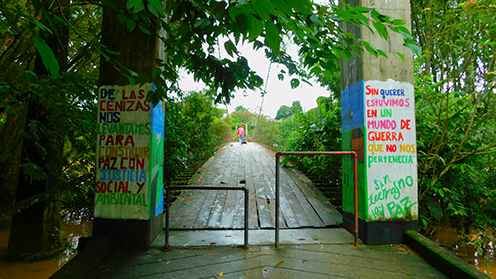 DE LAS
CENIZAS
NOS
LEVANTAMOS
PARA
CONSTRUIR
PAZ CON
JUSTICIA
SOCIAL Y
AMBIENTAL
SIN QUERER
ESTUVIMOS
EN UN
MUNDO DE
GUERRA
QUE NO NOS
PERTENECIA
Sin
no
hay
PAZ